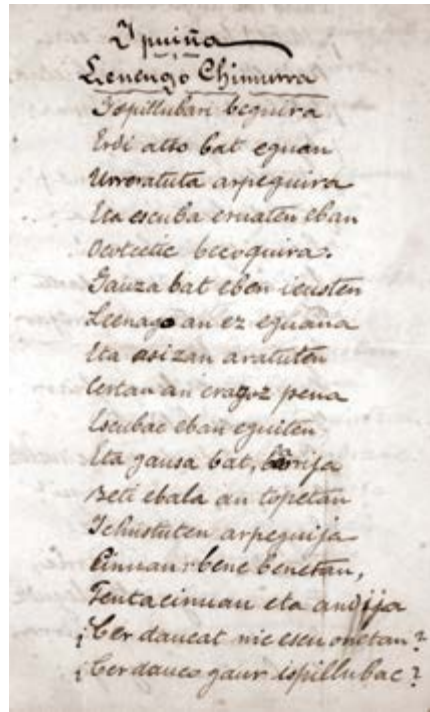 Ipuiña
Lenengo Chimurra
Ispillubari beguira
Erdi atso bat eguan
Urreratuta arpeguira
Eta escuba eruaten eban
Ocotcetic becoquira.
Gauza bat eben icusten
Leenago an ez eguana
Eta asizan aratuten
Certan an eragoz pena
Escubac eban eguiten
Eta gausa bat, barrija
Beti ebala an topetan
Ichustuten arpeguija
Cinuan bene benetan,
Tentacinuan eta andija
¿Cer daucat nic escu onetan?
¿Cer dauco gaur ispillubac?